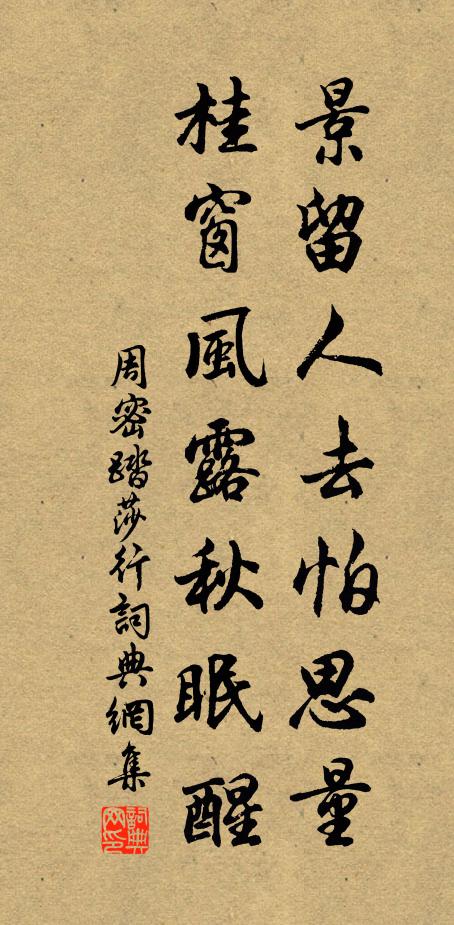 景留人去怕思量
桂窗風露秋眠醒
周密踏莎行詞典網集
詞典網印